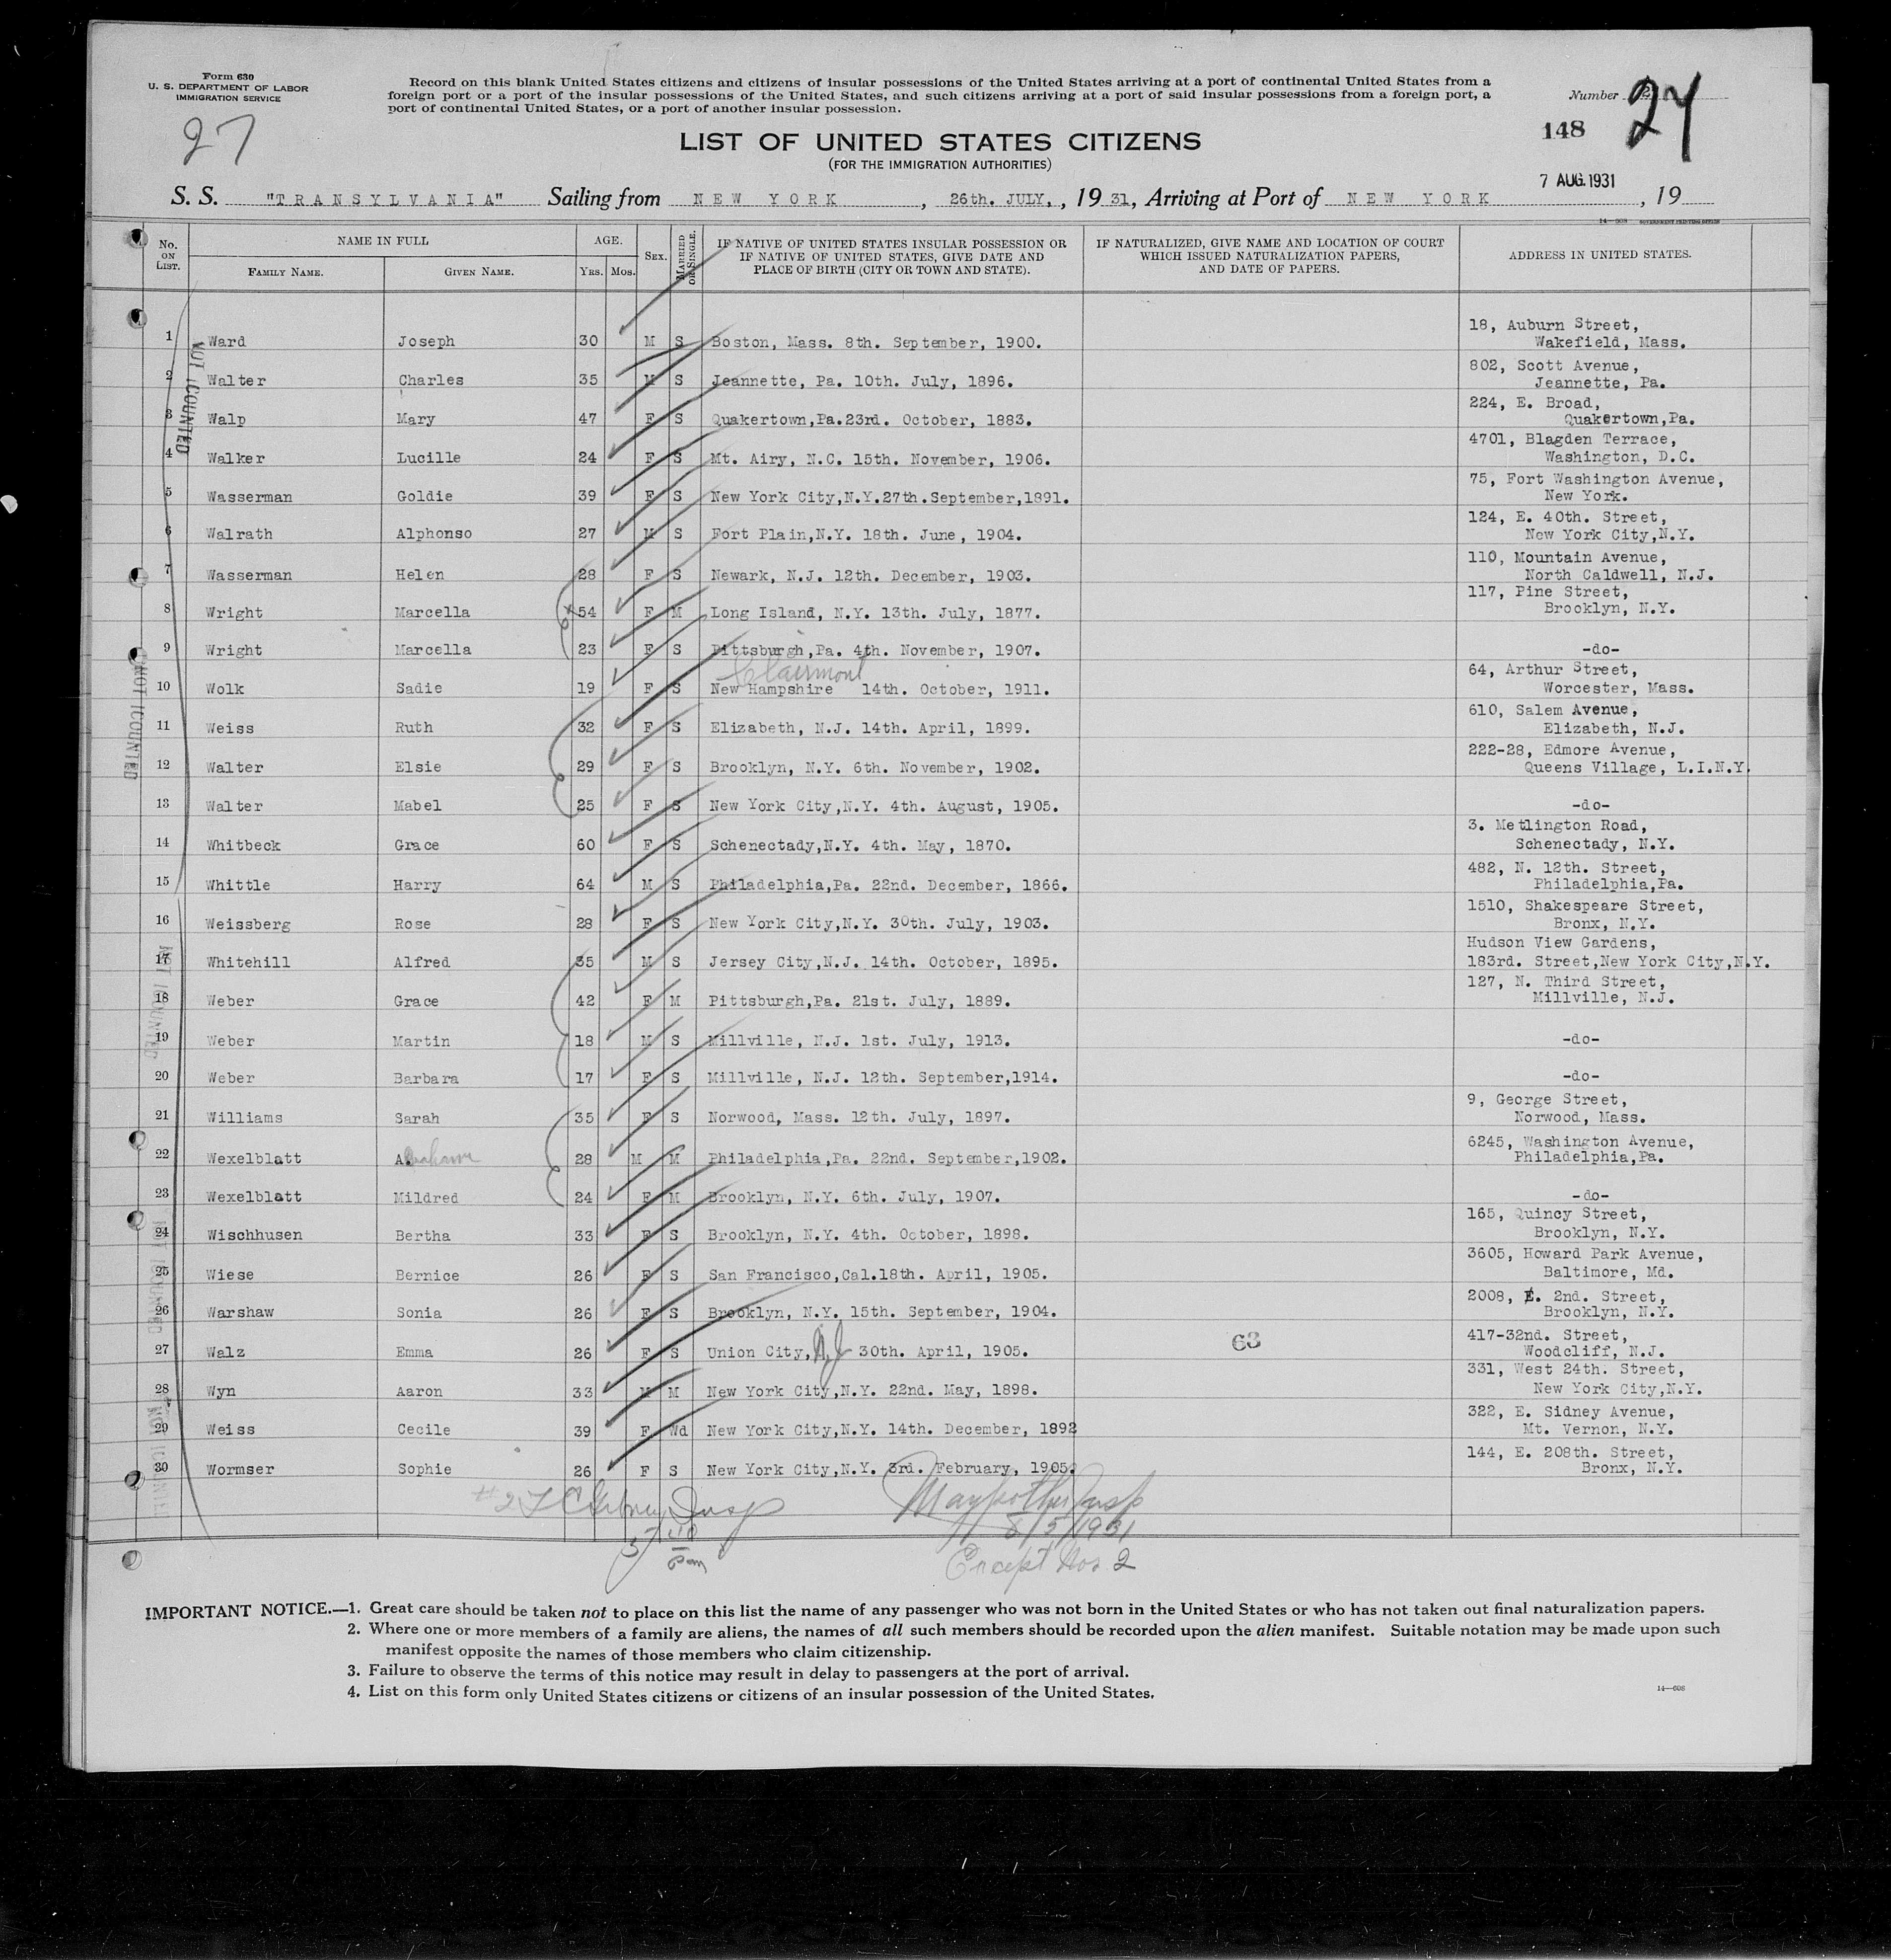 Form 630
U. S. DEPARTMENT OF LABOR
IMMIGRATION SERVICE
27
Record on this blank United States citizens and citizens of insular possessions of the United States arriving at a port of continental United States from a
foreign port or a port of the insular possessions of the United States, and such citizens arriving at a port of said insular possessions from a foreign port, a
port of continental United States, or a port of another insular possession.
Number
148
LIST OF UNITED STATES CITIZENS
(FOR THE IMMIGRATION AUTHORITIES)
7 AUG. 1931
S. S. "TRANSYLVANIA" Sailing from NEW YORK, 26th. JULY, , 19 31, Arriving at Port of NEW YORK , 19
No. ON LIST. NAME IN FULL AGE. SEX. MARRIED OR SINGLE. IF NATIVE OF UNITED STATES INSULAR POSSESSION OR IF NATIVE OF UNITED STATES, GIVE DATE AND PLACE OF BIRTH (CITY OR TOWN AND STATE). IF NATURALIZED, GIVE NAME AND LOCATION OF COURT WHICH ISSUED NATURALIZATION PAPERS, AND DATE OF PAPERS. ADDRESS IN UNITED STATES.
FAMILY NAME. GIVEN NAME. YRS. MOS.
1 Ward Joseph 30 M S Boston, Mass. 8th. September, 1900. 18, Auburn Street, Wakefield, Mass.
2 Walter Charles 35 M S Jeannette, Pa. 10th. July, 1896. 802, Scott Avenue, Jeannette, Pa.
3 Walp Mary 47 F S Quakertown,Pa.23rd. October, 1883. 224, E. Broad, Quakertown,Pa.
4 Walker Lucille 24 F S Mt. Airy, N.C. 15th. November, 1906. 4701, Blagden Terrace, Washington, D.C.
5 Wasserman Goldie 39 F S New York City,N.Y.27th.September,1891. 75, Fort Washington Avenue, New York.
6 Walrath Alphonso 27 M S Fort Plain,N.Y. 18th. June, 1904. 124, E. 40th. Street, New York City,N.Y.
7 Wasserman Helen 28 F S Newark, N.J. 12th. December, 1903. 110, Mountain Avenue, North Caldwell, N.J.
8 Wright Marcella 54 F M Long Island, N.Y. 13th. July, 1877. 117, Pine Street, Brooklyn, N.Y.
9 Wright Marcella 23 F S Pittsburgh,Pa. 4th. November, 1907. -do-
Clairmont
10 Wolk Sadie 19 F S New Hampshire 14th. October, 1911. 64, Arthur Street, Worcester, Mass.
11 Weiss Ruth 32 F S Elizabeth, N.J. 14th. April, 1899. 610, Salem Avenue, Elizabeth, N.J.
12 Walter Elsie 29 F S Brooklyn, N.Y. 6th. November, 1902. 222-28, Edmore Avenue, Queens Village, L.I.N.Y.
13 Walter Mabel 25 F S New York City,N.Y. 4th. August, 1905. -do-
14 Whitbeck Grace 60 F S Schenectady,N.Y. 4th. May, 1870. 3. Metlington Road, Schenectady, N.Y.
15 Whittle Harry 64 M S Philadelphia,Pa. 22nd. December, 1866. 482, N. 12th. Street, Philadelphia,Pa.
16 Weissberg Rose 28 F S New York City,N.Y. 30th. July, 1903. 1510, Shakespeare Street, Bronx, N.Y.
17 Whitehill Alfred 35 M S Jersey City,N.J. 14th. October, 1895. Hudson View Gardens, 183rd. Street,New York City,N.Y.
18 Weber Grace 42 F M Pittsburgh,Pa. 21st. July, 1889. 127, N. Third Street, Millville, N.J.
19 Weber Martin 18 M S Millville, N.J. 1st. July, 1913. -do-
20 Weber Barbara 17 F S Millville, N.J. 12th. September,1914. -do-
21 Williams Sarah 35 F S Norwood, Mass. 12th. July, 1897. 9, George Street, Norwood, Mass.
22 Wexelblatt Abraham 28 M M Philadelphia,Pa. 22nd. September,1902. 6245, Washington Avenue, Philadelphia,Pa.
23 Wexelblatt Mildred 24 F M Brooklyn, N.Y. 6th. July, 1907. -do-
24 Wischhusen Bertha 33 F S Brooklyn, N.Y. 4th. October, 1898. 165, Quincy Street, Brooklyn, N.Y.
25 Wiese Bernice 26 F S San Francisco,Cal.18th. April, 1905. 3605, Howard Park Avenue, Baltimore, Md.
26 Warshaw Sonia 26 F S Brooklyn, N.Y. 15th. September, 1904. 2008, E. 2nd. Street, Brooklyn, N.Y.
27 Walz Emma 26 F S Union City, N.J. 30th. April, 1905. 63 417-32nd. Street, Woodcliff, N.J.
28 Wyn Aaron 33 M M New York City,N.Y. 22nd. May, 1898. 331, West 24th. Street, New York City,N.Y.
29 Weiss Cecile 39 F Wd New York City,N.Y. 14th. December, 1892 322, E. Sidney Avenue, Mt. Vernon, N.Y.
30 Wormser Sophie 26 F S New York City,N.Y. 3rd. February, 1905. 144, E. 208th. Street, Bronx, N.Y.
NOT COUNTED
NOT COUNTED
NOT COUNTED
NOT COUNTED
NOT COUNTED
#2 Insp
Insp
8/5/1931
Except Nos 2
IMPORTANT NOTICE.—1. Great care should be taken not to place on this list the name of any passenger who was not born in the United States or who has not taken out final naturalization papers.
2. Where one or more members of a family are aliens, the names of all such members should be recorded upon the alien manifest. Suitable notation may be made upon such
manifest opposite the names of those members who claim citizenship.
3. Failure to observe the terms of this notice may result in delay to passengers at the port of arrival.
4. List on this form only United States citizens or citizens of an insular possession of the United States.
14—608